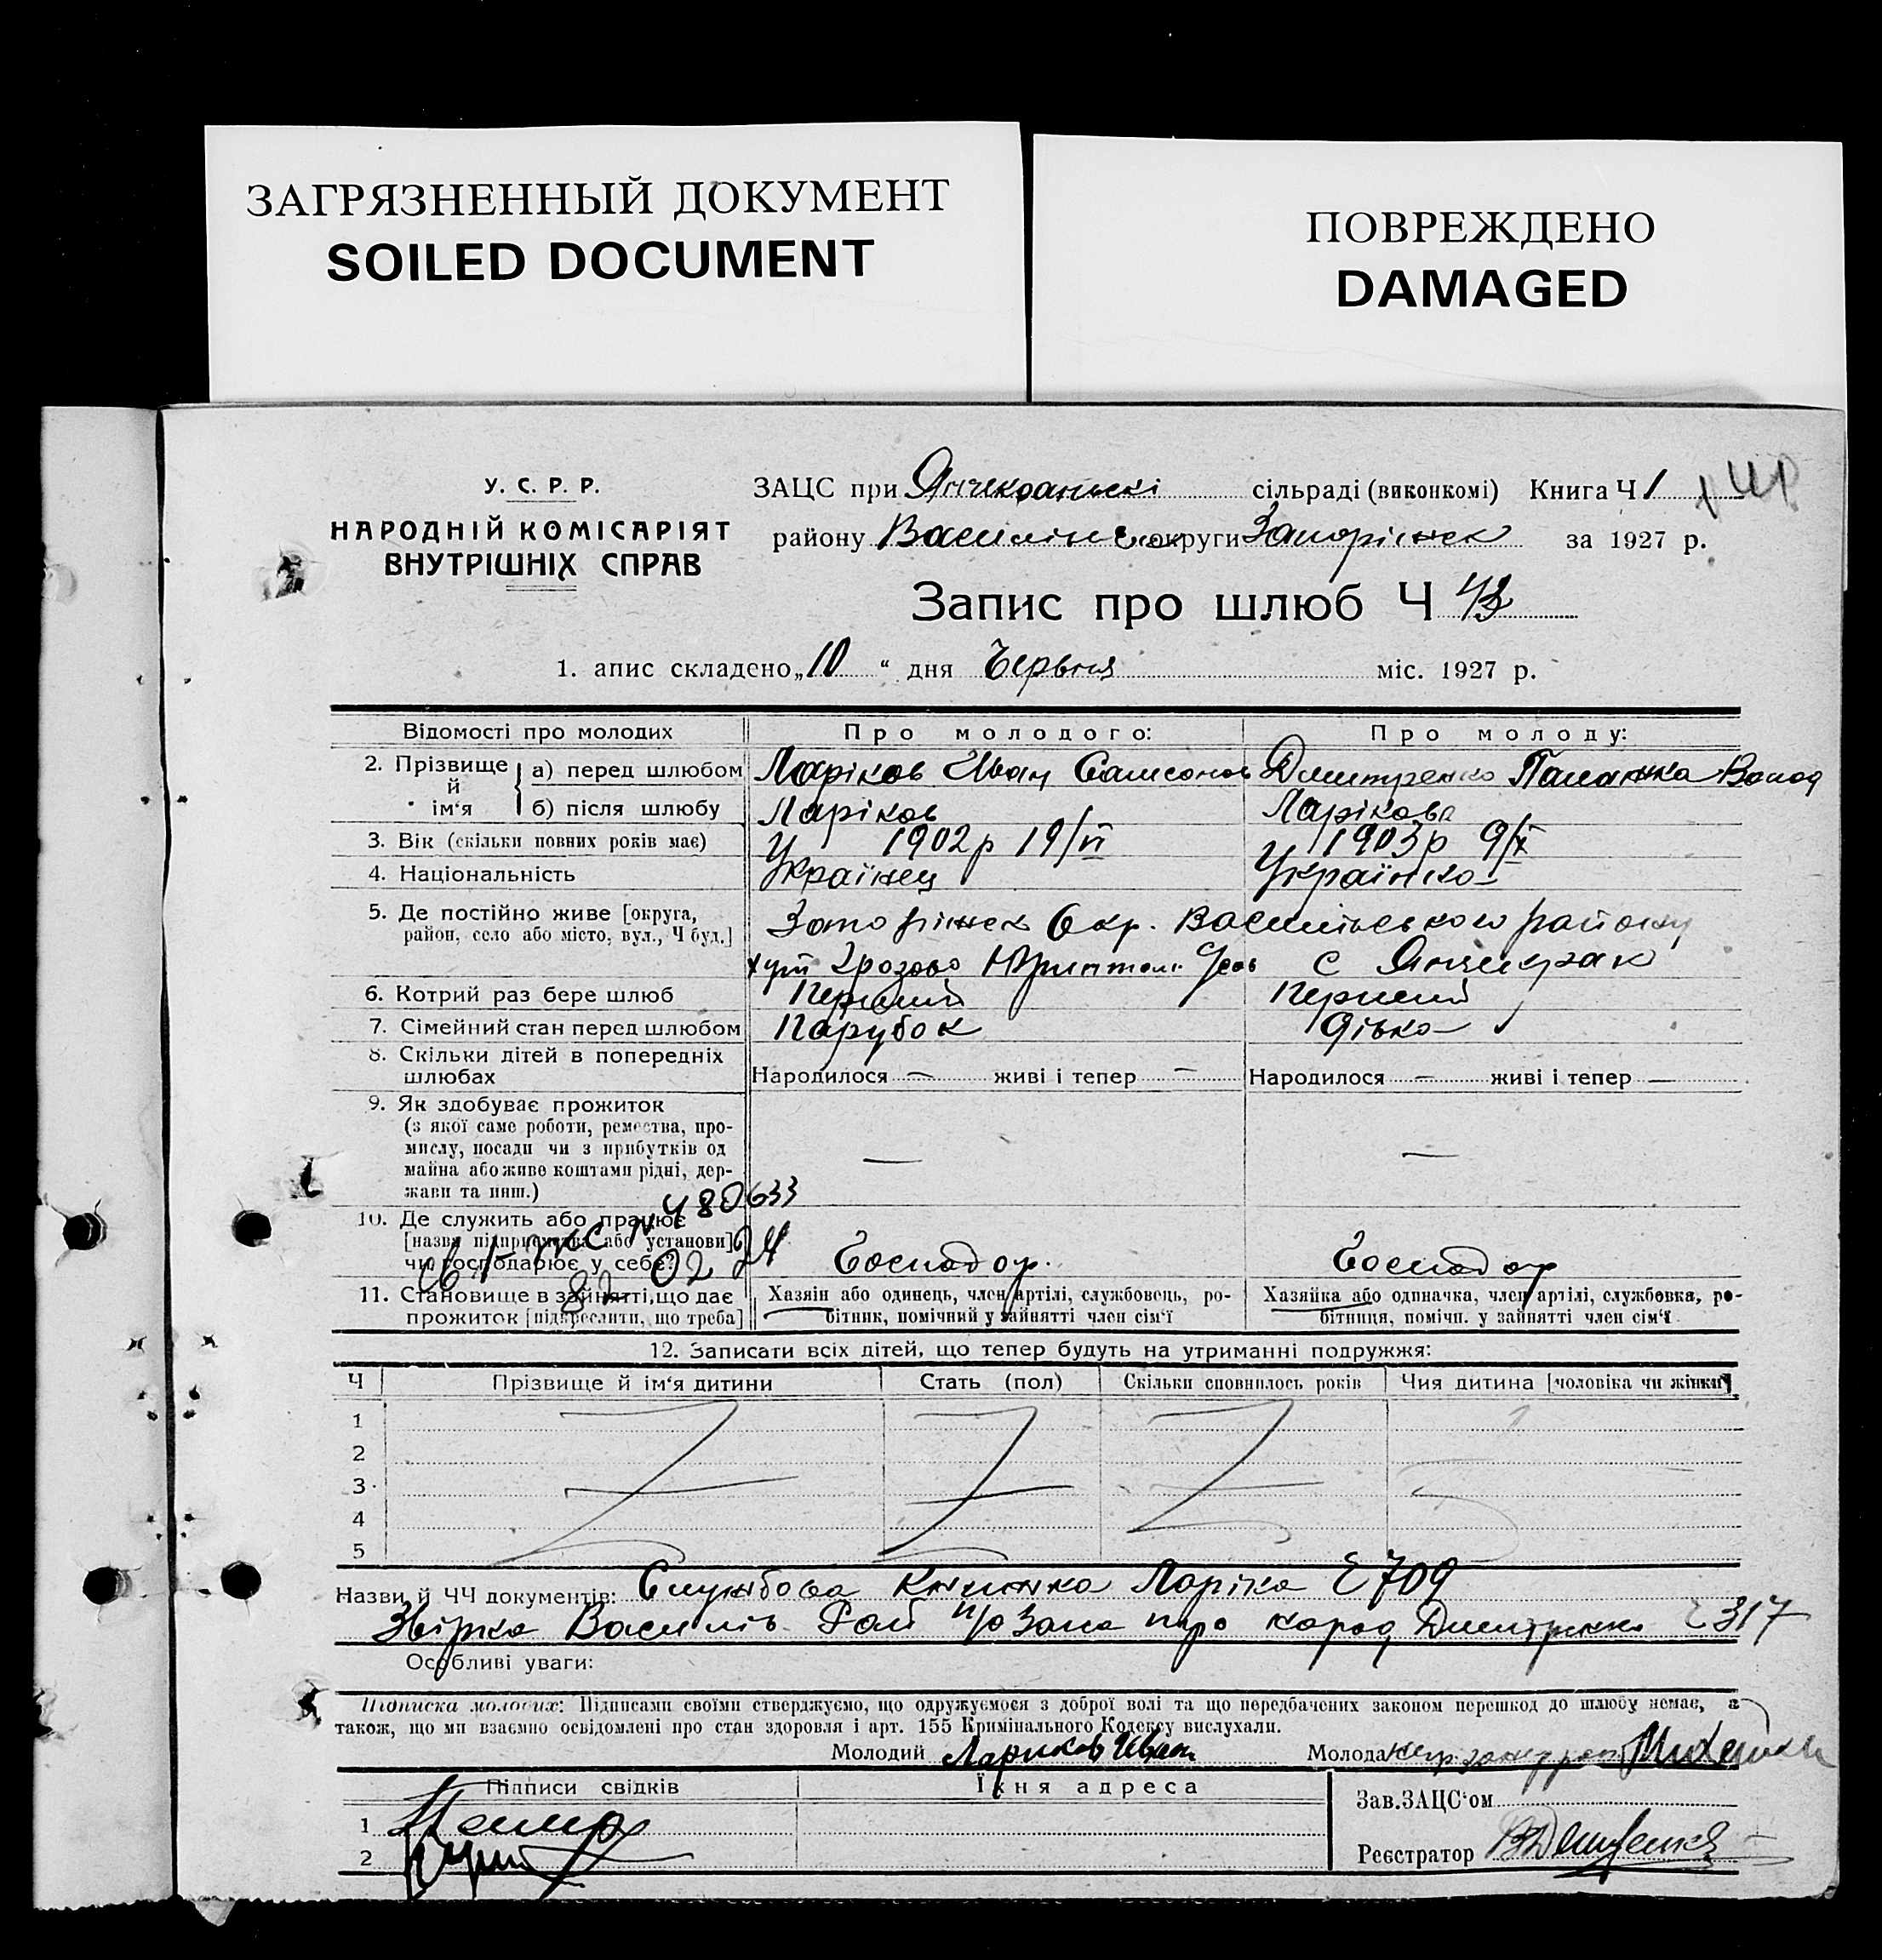 ЗАГРЯЗНЕННЫЙ ДОКУМЕНТ
SOILED DOCUMENT
ПОВРЕЖДЕНО
DAMAGED
У. С. Р. Р.
НАРОДНІЙ КОМІСАРІЯТ
ВНУТРІШНІХ СПРАВ
ЗАЦС при сільраді (виконкомі) Книга Ч 1
району округи Запоріжск за 1927 р.
Запис про шлюб Ч 43
1. апис складено „10“ дня Червня міс. 1927 р.
Відомості про молодих Про молодого: Про молоду:
2. Прізвище й ім‘я
а) перед шлюбом Ларіков Иван Самсонов Дмитренко Паланжка
б) після шлюбу Ларіков Ларікова
3. Вік (скільки повних років має) 1902 р 19/VI 1903 р 9/X
4. Національність Українец Українка
5. Де постійно живе [округа, Запоріжск Окр. Василівського району
район, село або місто, вул., Ч буд.]
хут с Янчекрак
6. Котрий раз бере шлюб Перший Перший
7. Сімейний стан перед шлюбом Парубок Дівка
8. Скільки дітей в попередніх
шлюбах Народилося — живі і тепер — Народилося — живі і тепер —
9. Як здобуває прожиток
(з якої саме роботи, ремества, про-
мислу, посади чи з прибутків од
майна або живе коштами рідні, дер- — —
жави та инш.)
480633
10. Де служить або працює
[назва підприємства або установи]
чи господарює у себе? Господар. Господар
82 02 24
11. Становище в зайнятті, що дає Хазяін або одинець, член артілі, службовець, ро- Хазяйка або одиначка, член артілі, службовка, ро-
прожиток [підкреслити, що треба] бітник, помічний у зайнятті член сім‘ї бітниця, помічн. у зайнятті член сім‘ї.
12. Записати всіх дітей, що тепер будуть на утриманні подружжя:
Ч Прізвище й ім‘я дитини Стать (пол) Скільки сповнилось років Чия дитина [чоловіка чи жінки]
1
2
3
4
5
Назви й ЧЧ документів: Службова Книжка Ларіка 709
Василів. про народ Дмитренко 317
Особливі уваги:
Підписка молодих: Підписами своїми стверджуємо, що одружуємося з доброї волі та що передбачених законом перешкод до шлюбу немає, а
також, що ми взаємно освідомлені про стан здоровля і арт. 155 Кримінального Кодексу вислухали.
Молодий Лариков Иван Молода
Підписи свідків Їхня адреса
Зав. ЗАЦС‘ом
1
Реєстратор
2